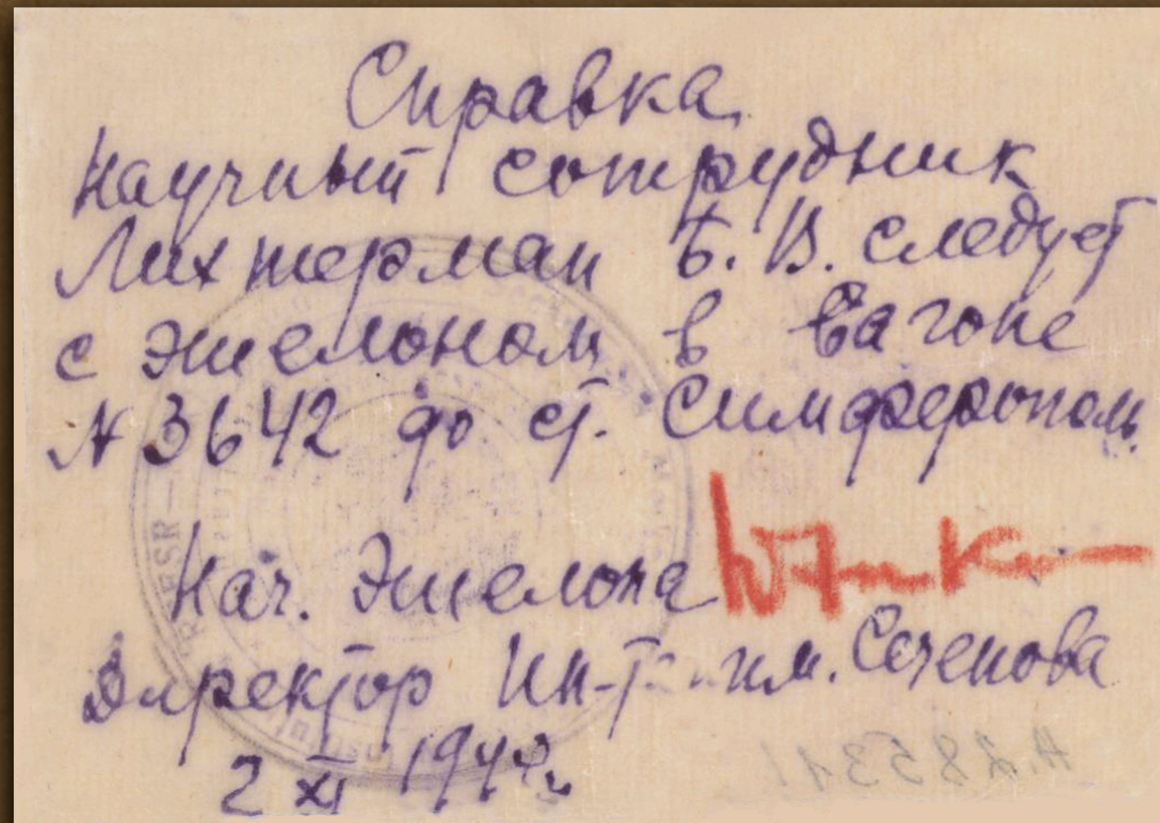 Справка
Научный сотрудник
Лихтерман Б. В. следует
с эшелоном в вагоне
№ 3642 до ст. Симферополь.
Нач. Эшелона
Директор Ин-т им. Сеченова
2 XI 194
RSFSR